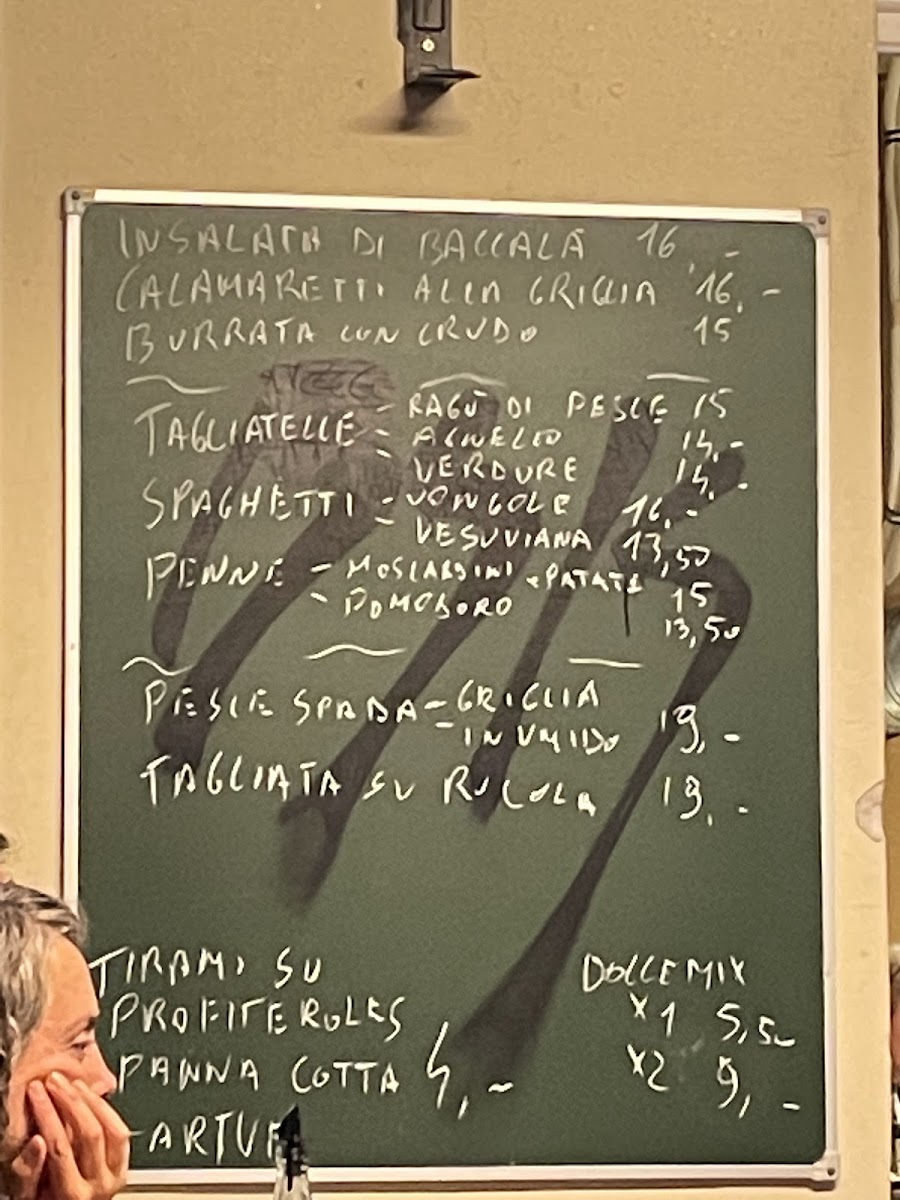 INSALATA DI BACCALÀ 16,-
CALAMARETTI ALLA GRIGLIA 16,-
BURRATA CON CRUDO 15
TAGLIATELLE - RAGÙ DI PESCE 15
- AGNELLO 14,-
- VERDURE 14,-
SPAGHETTI - VONGOLE 16,-
- VESUVIANA 13,50
PENNE - MOSCARDINI + PATATE 15
- POMODORO 13,50
PESCE SPADA - GRIGLIA
- IN UMIDO 19,-
TAGLIATA SU RUCOLA 19,-
TIRAMI SU
PROFITEROLES
PANNA COTTA 4,-
DOLCE MIX
X1 5,50
X2 9,-